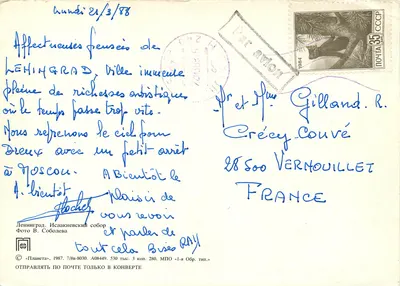 Lundi 21/3/88
Affectueuses pensées de
LENINGRAD, Ville immense
pleine de richesses artistiques
où le temps passe trop vite.
Nous reprenons le ciel pour
Dreux avec un petit arrêt
à Moscou. A Bientôt le
A bientôt
plaisir de
vous revoir
et parler de
tout cela Bises
Par avion
ПОЧТА СССР
35
1984
Mr et Mme Gilland. R.
Crécy-Couvé
28500 VERNOUILLET
FRANCE
Ленинград. Исаакиевский собор
Фото В. Соболева
«Планета», 1987.
ОТПРАВЛЯТЬ ПО ПОЧТЕ ТОЛЬКО В КОНВЕРТЕ